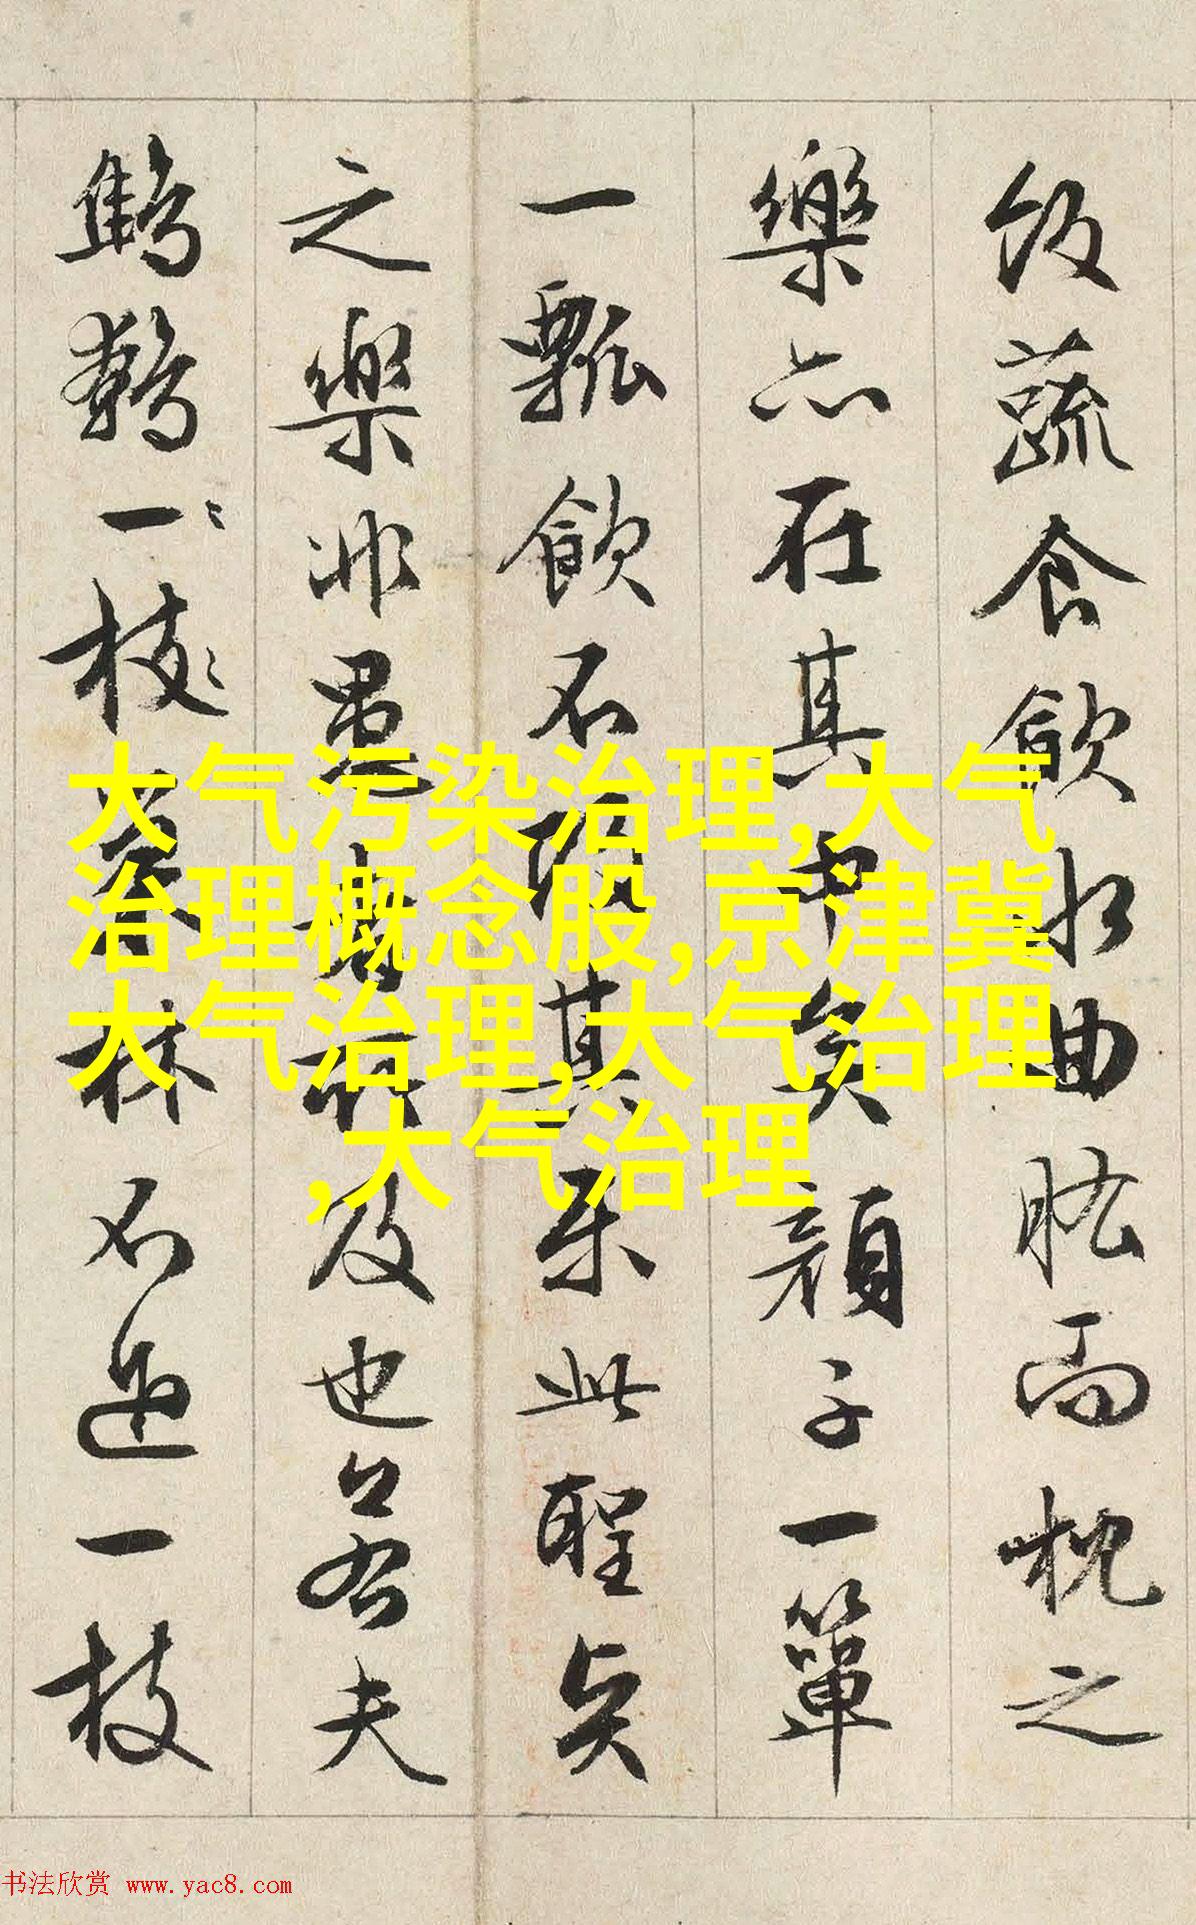 飯蔬食飲水曲肱而枕之
樂亦在其中矣顏子一簞
一瓢飲不改其樂此聖賢
之樂非愚者所及也若夫
鷦鷯一枝巢林不過一枝
大气污染治理,大气
治理概念股,京津冀
大气治理,大气治理
,大气治理
书法欣赏 www.yac8.com